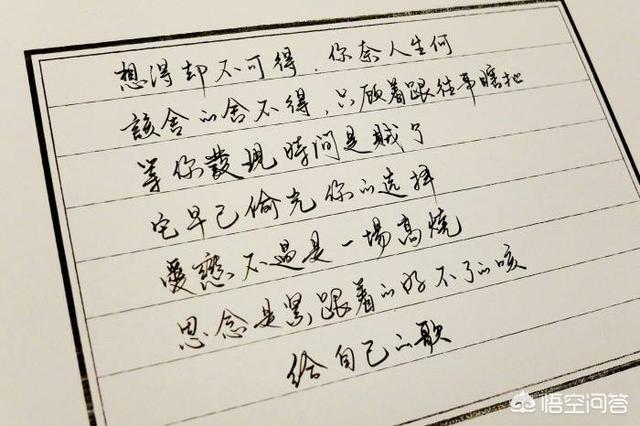 想得却不可得，你奈人生何
該舍的舍不得，只顧着跟往事瞎扯
等你發現時間是賊了
它早已偷光你的选择
愛戀不過是一場高燒
思念是緊跟着的好不了的咳
給自己的歌
悟空问答